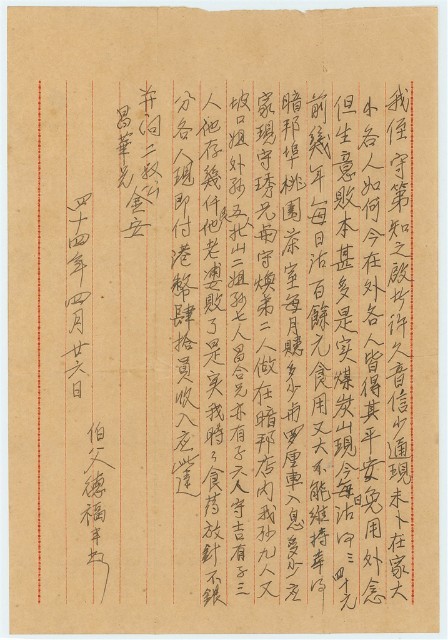 我侄守第知之啟者許久音信少通現未卜在家大
小各人如何今在外各人皆得其平安免用外念
但生意敗本甚多是實煤炭山現今每日沽四三四十元
前幾年每日沽百餘元食用又大不能維持幸得
暗邦埠桃園茶室每月賺多少每罗厘車入息多少应
家現守琇兄與守煥弟二人做在暗邦店內我孫九人又
坡口姐外孫五人 山二姐孫七人昌合兄亦有子六人守吉有子三
人他存幾仟他老婆敗了是實我時々食药放針不銀
分各人現即付港幣肆拾員收入应
並问二叔公
昌華兄 金安
四十四年四月廿六日
伯父德福